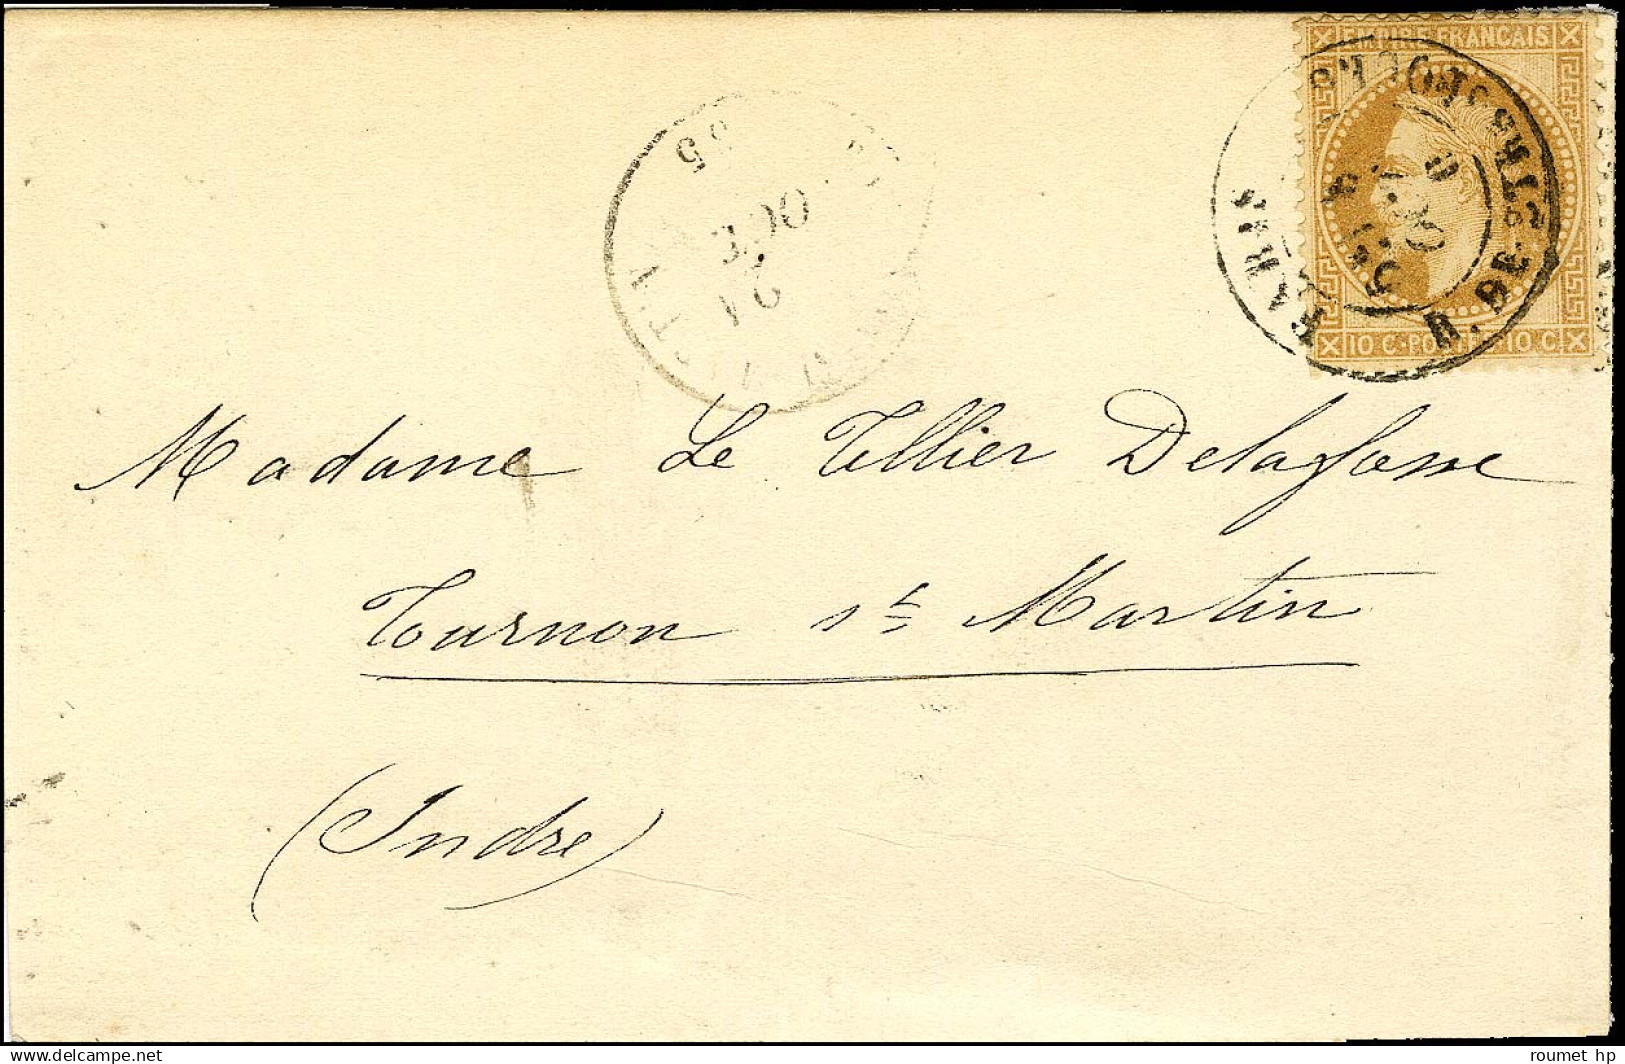 EMPIRE FRANCAIS
10 C · POSTES · 10 C
PARIS
OCT
Madame Le Tellier Delafosse
Tournon St Martin
(Indre)
www.delcampe.net
roumet hp